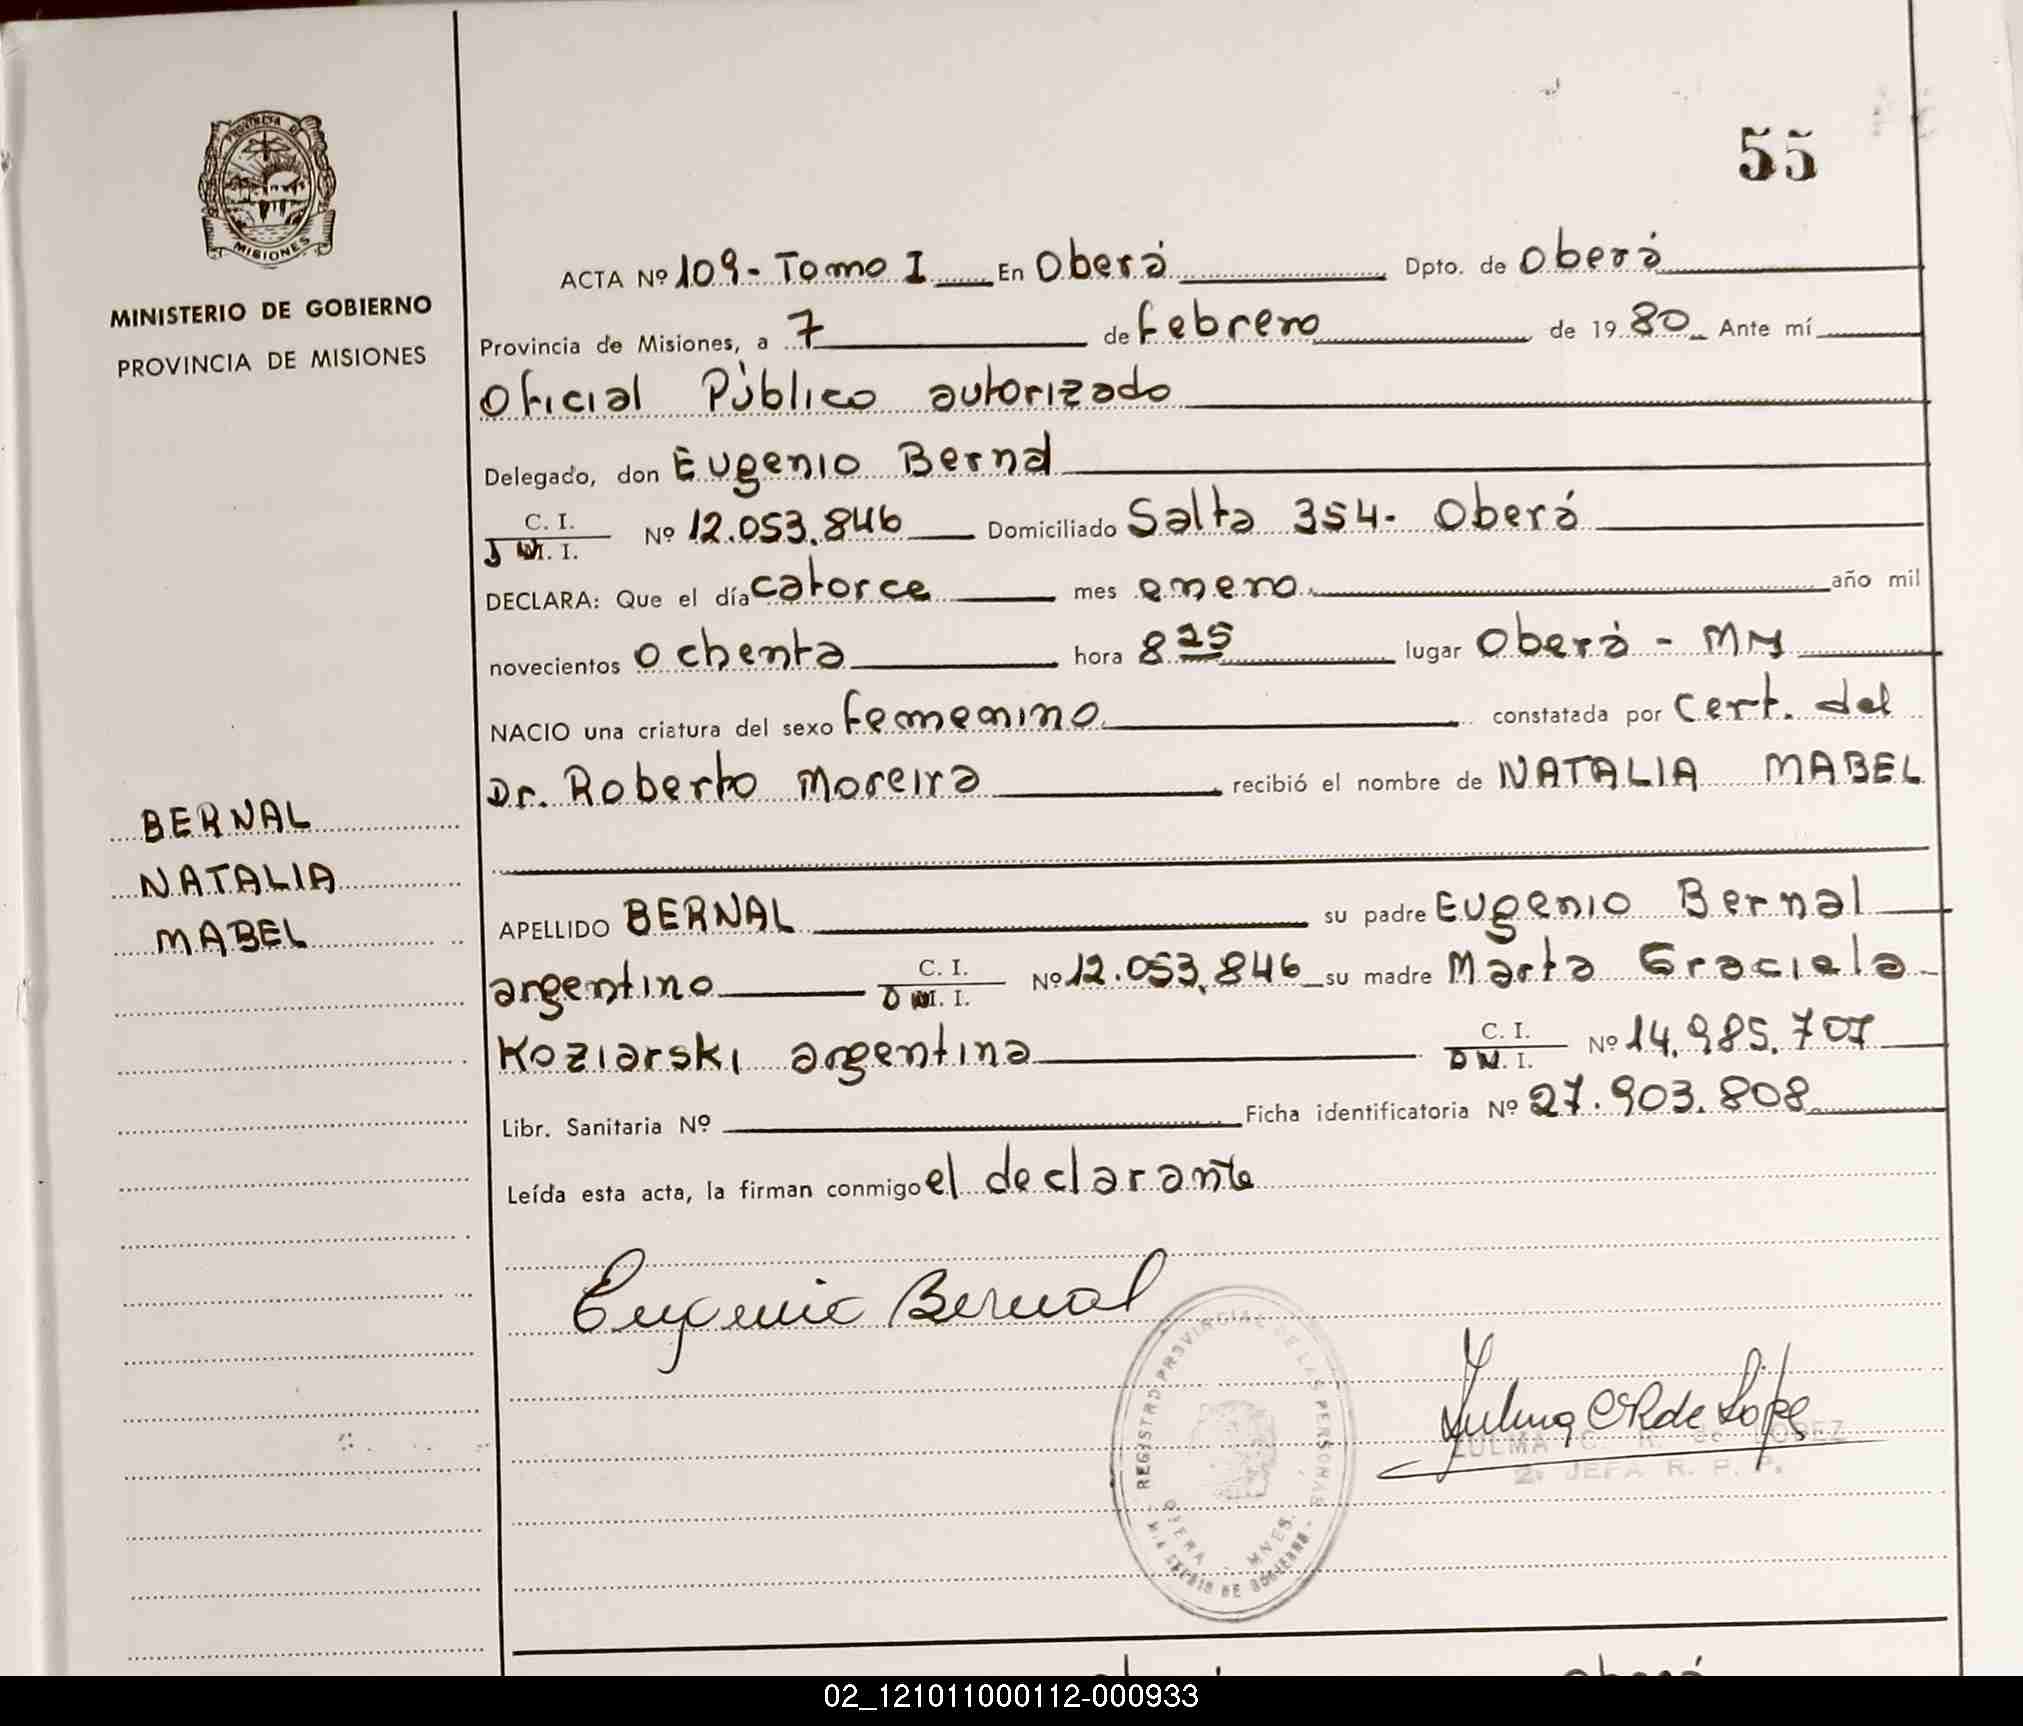 55
PROVINCIA DE
MISIONES
MINISTERIO DE GOBIERNO
PROVINCIA DE MISIONES
ACTA Nº 109 - Tomo I En Oberá Dpto. de Oberá
Provincia de Misiones, a 7 de febrero de 1980 Ante mí
Oficial Público autorizado
Delegado, don Eugenio Bernal
C. I.
D N I. I. Nº 12.053.846 Domiciliado Salta 354 - Oberá
DECLARA: Que el día catorce mes enero año mil
novecientos ochenta hora 8 25 lugar Oberá - Mns
NACIO una criatura del sexo femenino constatada por cert. del
Dr. Roberto Moreira recibió el nombre de NATALIA MABEL
BERNAL
NATALIA
MABEL
APELLIDO BERNAL su padre Eugenio Bernal
argentino C. I.
D N I. I. Nº 12.053.846 su madre Marta Graciela
Koziarski argentina C. I.
D N. I. Nº 14.985.707
Libr. Sanitaria Nº Ficha identificatoria Nº 27.903.808
Leída esta acta, la firman conmigo el declarante
Eugenio Bernal
REGISTRO PROVINCIAL DE LAS PERSONAS
OBERA MNES.
MINISTERIO DE GOBIERNO
Zulma C R de López
ZULMA C. R. de LOPEZ
2ª JEFA R. P. P.
02_121011000112-000933